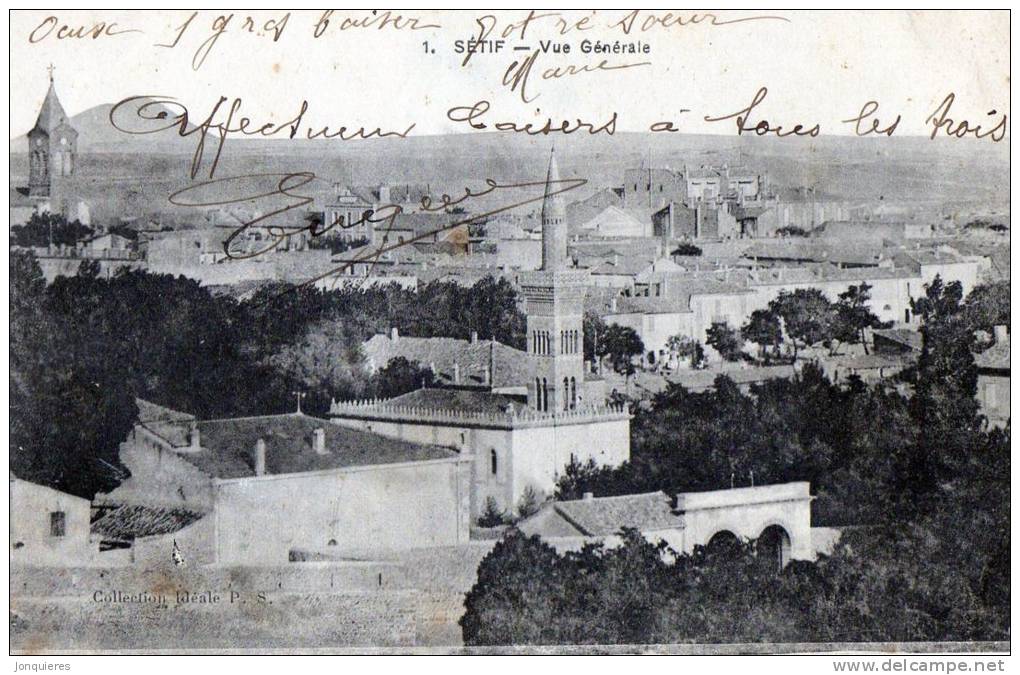 1 gros baiser
Marie
1. SÉTIF — Vue Générale
Affectueux baisers à tous les trois
Eugène
Collection Idéale P. S.
Jonquieres
www.delcampe.net